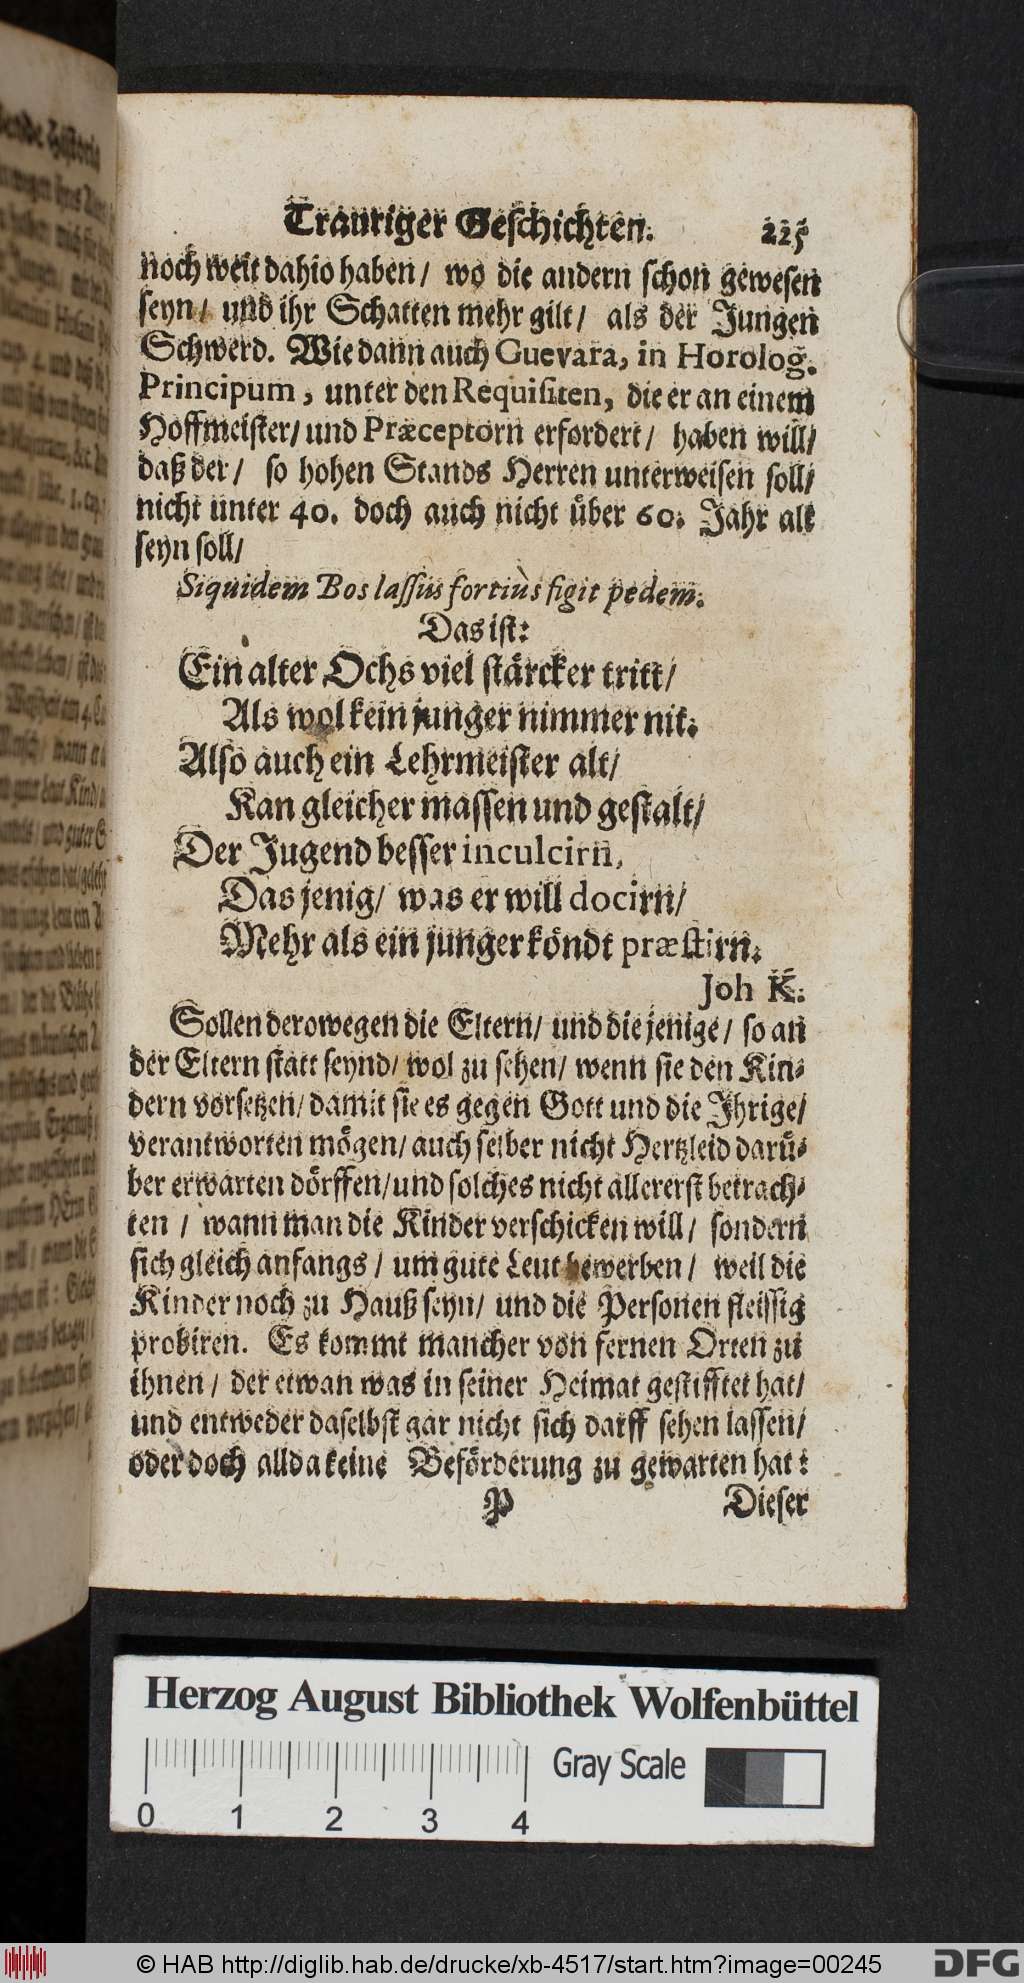 Trauriger Geschichten. 225
noch weit dahio haben / wo die andern schon gewesen
seyn / und ihr Schatten mehr gilt / als der Jungen
Schwerd. Wie dann auch Guevara, in Horolog.
Principum, unter den Requisiten, die er an einem
Hoffmeister / und Præceptorn erfordert / haben will /
daß der / so hohen Stands Herren unterweisen soll /
nicht unter 40. doch auch nicht über 60. Jahr alt
seyn soll /
Siquidem Bos lassus fortiùs figit pedem.
Das ist:
Ein alter Ochs viel stärcker tritt /
Als wol kein junger nimmer nit.
Also auch ein Lehrmeister alt /
Kan gleicher massen und gestalt /
Der Jugend besser inculcirn,
Das jenig / was er will docirn /
Mehr als ein junger köndt præstirn.
Joh K.
Sollen derowegen die Eltern / und die jenige / so an
der Eltern statt seynd / wol zu sehen / wenn sie den Kin-
dern vorsetzen / damit sie es gegen Gott und die Ihrige /
verantworten mögen / auch selber nicht Hertzleid darü-
ber erwarten dörffen / und solches nicht allererst betrach-
ten / wann man die Kinder verschicken will / sondern
sich gleich anfangs / um gute Leut bewerben / weil die
Kinder noch zu Hauß seyn / und die Personen fleissig
probiren. Es kommt mancher von fernen Orten zu
ihnen / der etwan was in seiner Heimat gestifftet hat /
und entweder daselbst gar nicht sich darff sehen lassen /
oder doch allda keine Beförderung zu gewarten hat:
P Dieser
Herzog August Bibliothek Wolfenbüttel
Gray Scale
0 1 2 3 4
© HAB http://diglib.hab.de/drucke/xb-4517/start.htm?image=00245
DFG